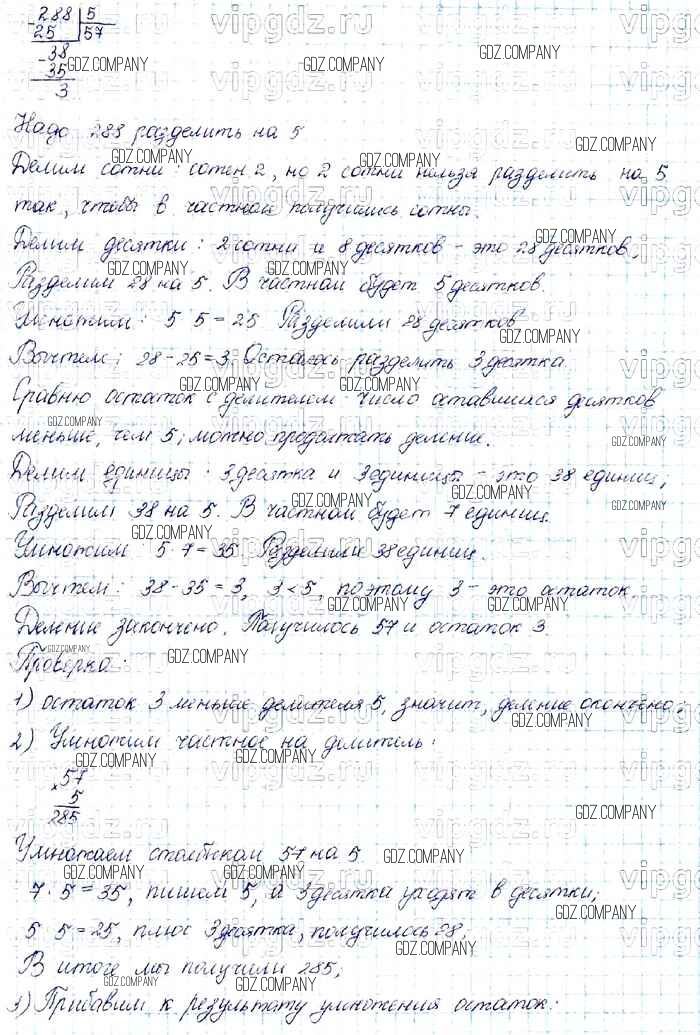 288 | 5
- 25 | 57
- 38
35
3
Надо 288 разделить на 5
Делим сотни: сотен 2, но 2 сотни нельзя разделить на 5
так, чтобы в частном получились сотни.
Делим десятки: 2 сотни и 8 десятков - это 28 десятков,
Разделим 28 на 5. В частном будет 5 десятков.
Умножим: 5 · 5 = 25 Разделили 28 десятков
Вычтем: 28 - 25 = 3 Осталось разделить 3 десятка.
Сравню остаток с делителем: число оставшихся десятков
меньше, чем 5, можно продолжать деление.
Делим единицы: 3 десятка и 3 единицы - это 38 единиц,
Разделим 38 на 5. В частном будет 7 единиц.
Умножим 5 · 7 = 35 Разделили 38 единиц.
Вычтем: 38 - 35 = 3, 3 < 5, поэтому 3 - это остаток.
Деление закончено. Получилось 57 и остаток 3.
Проверка:
1) остаток 3 меньше делителя 5, значит, деление окончено;
2) Умножим частное на делитель:
× 57
5
285
Умножаем столбиком 57 на 5
7 · 5 = 35, пишем 5, а 3 десятка уходят в десятки;
5 · 5 = 25, плюс 3 десятка, получилось 28,
В итоге мы получили 285;
3) Прибавим к результату умножения остаток:
vipgdz.ru
GDZ.COMPANY